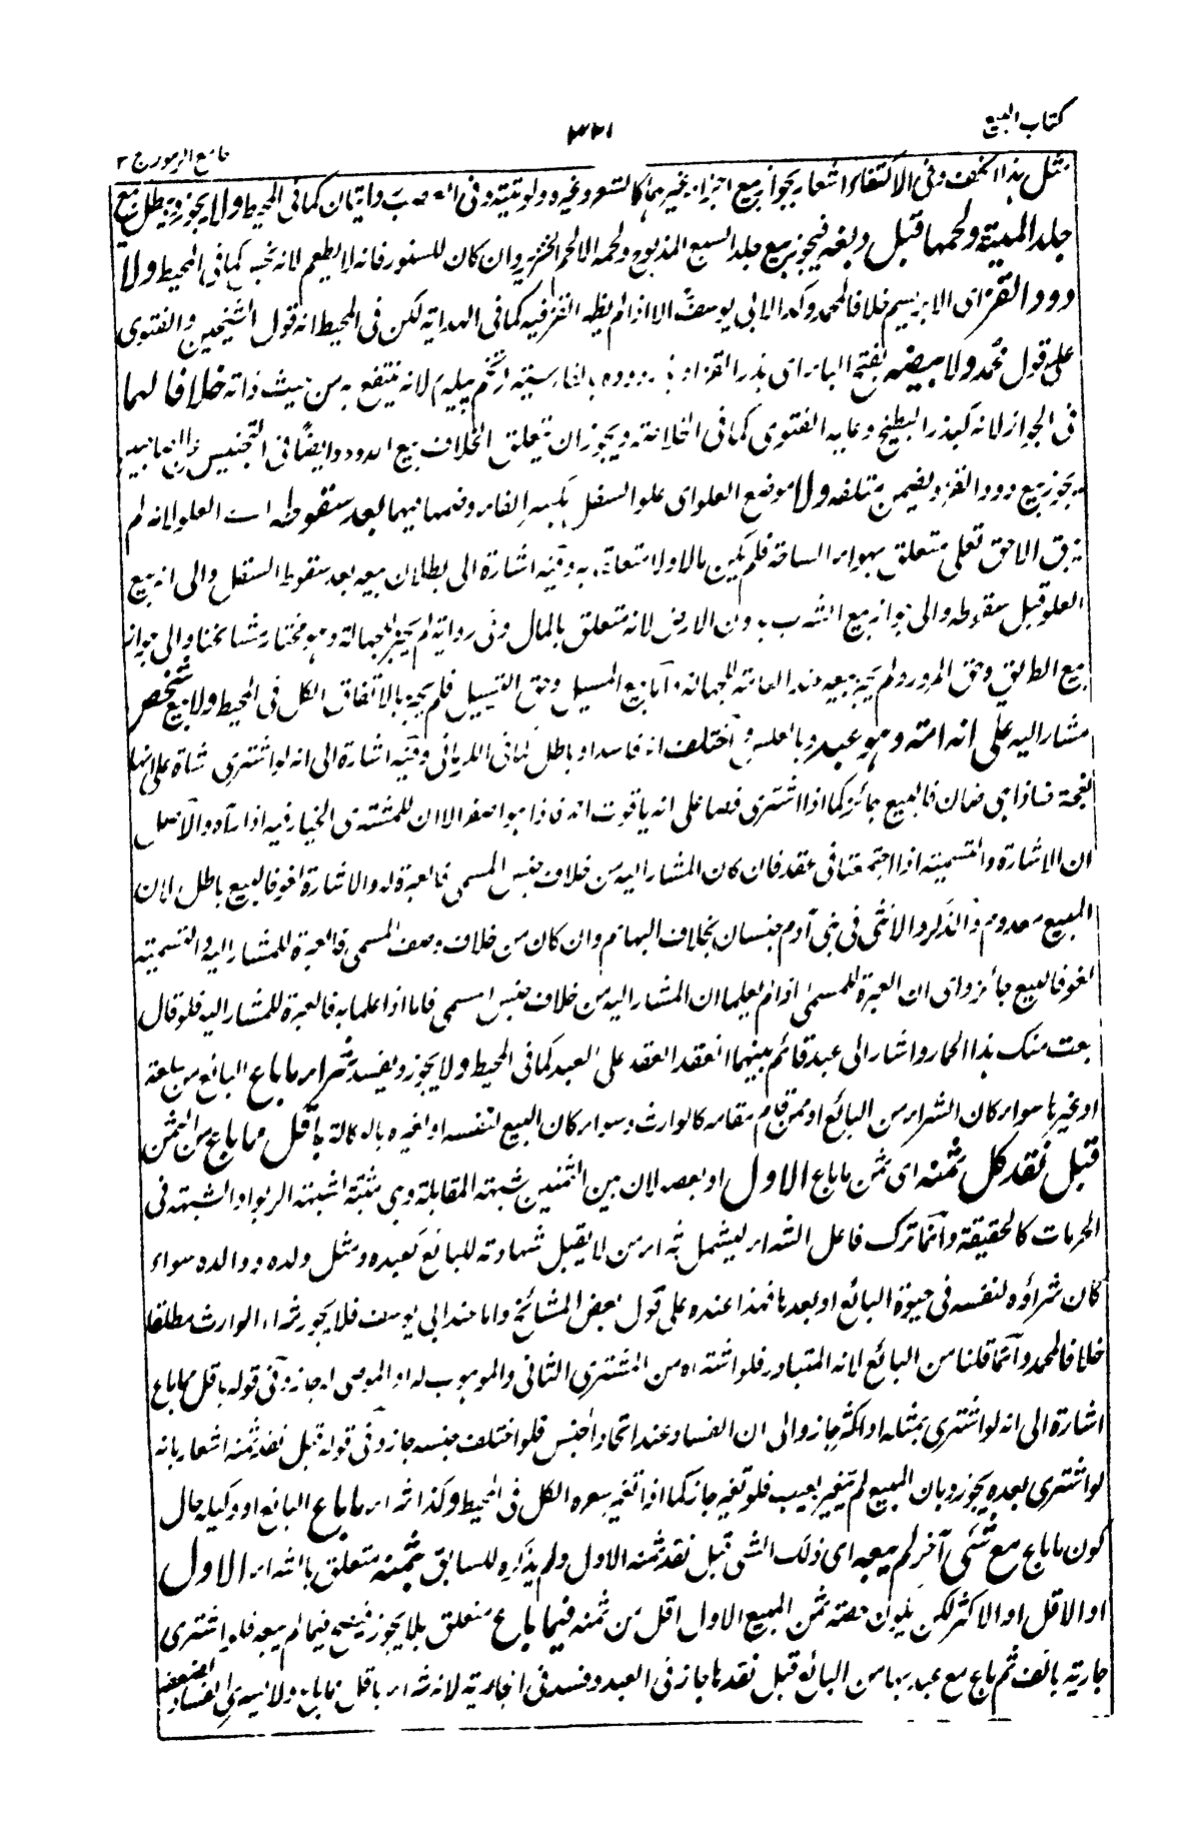 كتاب البيع
٣٢١
جامع الرموز ج ٢
بمثل هذا الخف وفى الاكتفاء اشعار بجواز بيع اجزاء غيرهما كالشعر وغيره ولو ميتة وفى العصب روايتان كما فى المحيط ولا يجوز ويبطل بيع
جلد الميتة ولحمها قبل دبغه فيجوز بيع جلد السبع المذبوح ولحمه الا لحم الخنزير وان كان للسنور فانه لا يطعم لانه نجس كما فى المحيط ولا
دود القز اى الابريسم خلافا لمحمد وكذا لابى يوسف الا اذا لم يظهر القز فيه كما فى الهداية لكن فى المحيط انه قول الشيخين والفتوى
على قول محمد ولا بيضه بفتح الباء اى بذر القز دوده بالفارسية تخم پيله لانه ينتفع به من حيث ذاته خلافا لهما
فى الجواز لانه كبذر البطيخ وعليه الفتوى كما فى الخلاصة ويجوز ان يتعلق الخلاف ببيع الدود وايضا فى التجنيس
يجوز بيع دود القز ويضمن متلفه ولا موضع العلو اى علو السفل بكسر الفاء وضمها فيهما بعد سقوطه اى العلو لانه لم
يبق الا حق تعلى متعلق بهواء الساحة فلم يكن مالا ولا متعلقا به وفيه اشارة الى بطلان بيعه بعد سقوط السفل والى انه بيع
العلو قبل سقوطه والى جواز بيع الشرب بدون الارض لانه متعلق بالمال وفى رواية لم يجز للجهالة وهو مختار مشائخنا والى جواز
بيع الطريق وحق المرور ولم يجز بيعه عند العامة للجهالة واما بيع المسيل وحق التسييل فلم يجز بالاتفاق الكل فى المحيط ولا بيع شخص
مشار اليه على انه امة وهو عبد وبالعكس واختلف انه فاسد او باطل كما فى الكرمانى وفيه اشارة الى انه لو اشترى شاة على انها
نعجة فاذا هى ضان فالبيع جائز كما اذا اشترى فصا على انه ياقوت احمر فاذا هو اصفر الا ان للمشترى الخيار فيه اذا رآه والاصل
ان الاشارة والتسمية اذا اجتمعتا فى عقد فان كان المشار اليه من خلاف جنس المسمى فالعبرة له والاشارة لغو فالبيع باطل لان
المبيع معدوم والذكر والانثى فى بنى آدم جنسان بخلاف البهائم وان كان من خلاف وصف المسمى فالعبرة للمشار اليه والتسمية
لغو فالبيع جائز واى ان العبرة للمسمى اذا لم يعلما ان المشار اليه من خلاف جنس المسمى فاما اذا علما به فالعبرة للمشار اليه فلو قال
بعت منك هذا الحمار واشار الى عبد قائم بينهما انعقد العقد على العبد كما فى المحيط ولا يجوز ويفسد شراء ما باع البائع من سلعة
او غيرها سواء كان الشراء من البائع او ممن قام مقامه كالوارث وسواء كان البيع لنفسه او لغيره بالوكالة باقل مما باع من الثمن
قبل نقد كل ثمنه اى ثمن ما باع الاول او بعضه لان بين الثمنين شبهة المقابلة وهى مثبتة لشبهة الربوا والشبهة فى
الحرمات كالحقيقة وانما ترك فاعل الشراء ليشمل شراء من لا يقبل شهادته للبائع كعبده ومثل ولده ووالده سواء
كان شراؤه لنفسه فى حيوة البائع او بعدها فهذا عنده على قول بعض المشائخ واما عند ابى يوسف فلا يجوز شراء الوارث مطلقا
خلافا لمحمد وانما قلنا من البائع لانه المتبادر فلو اشتراه من المشترى الثانى والموهوب له او الموصى له جاز وفى قوله باقل مما باع
اشارة الى انه لو اشترى بمثله او اكثر جاز والى ان الفساد عند اتحاد الجنس فلو اختلف جنسه جاز وفى قوله قبل نقد ثمنه اشعار بانه
لو اشترى بعده يجوز وبان المبيع لم يتغير بعيب فلو تغير جاز كما اذا تغير سعره الكل فى المحيط وكذا شراء ما باع البائع او وكيله حال
كون ما باع مع شئ آخر لم يبعه اى ذلك الشئ قبل نقد ثمنه الاول ولم يذكره للسابق بثمنه متعلق بالشراء الاول
او الاقل او الاكثر لكن يكون حصة ثمن المبيع الاول اقل من ثمنه فيما باع متعلق بلا يجوز فيصح فيما لم يبعه فلو اشترى
جارية بالف ثم باع مع عبد بها من البائع قبل نقدها جاز فى العبد وفسد فى الجارية لانه شراء باقل مما باع ولا يسرى الفساد لضعفه